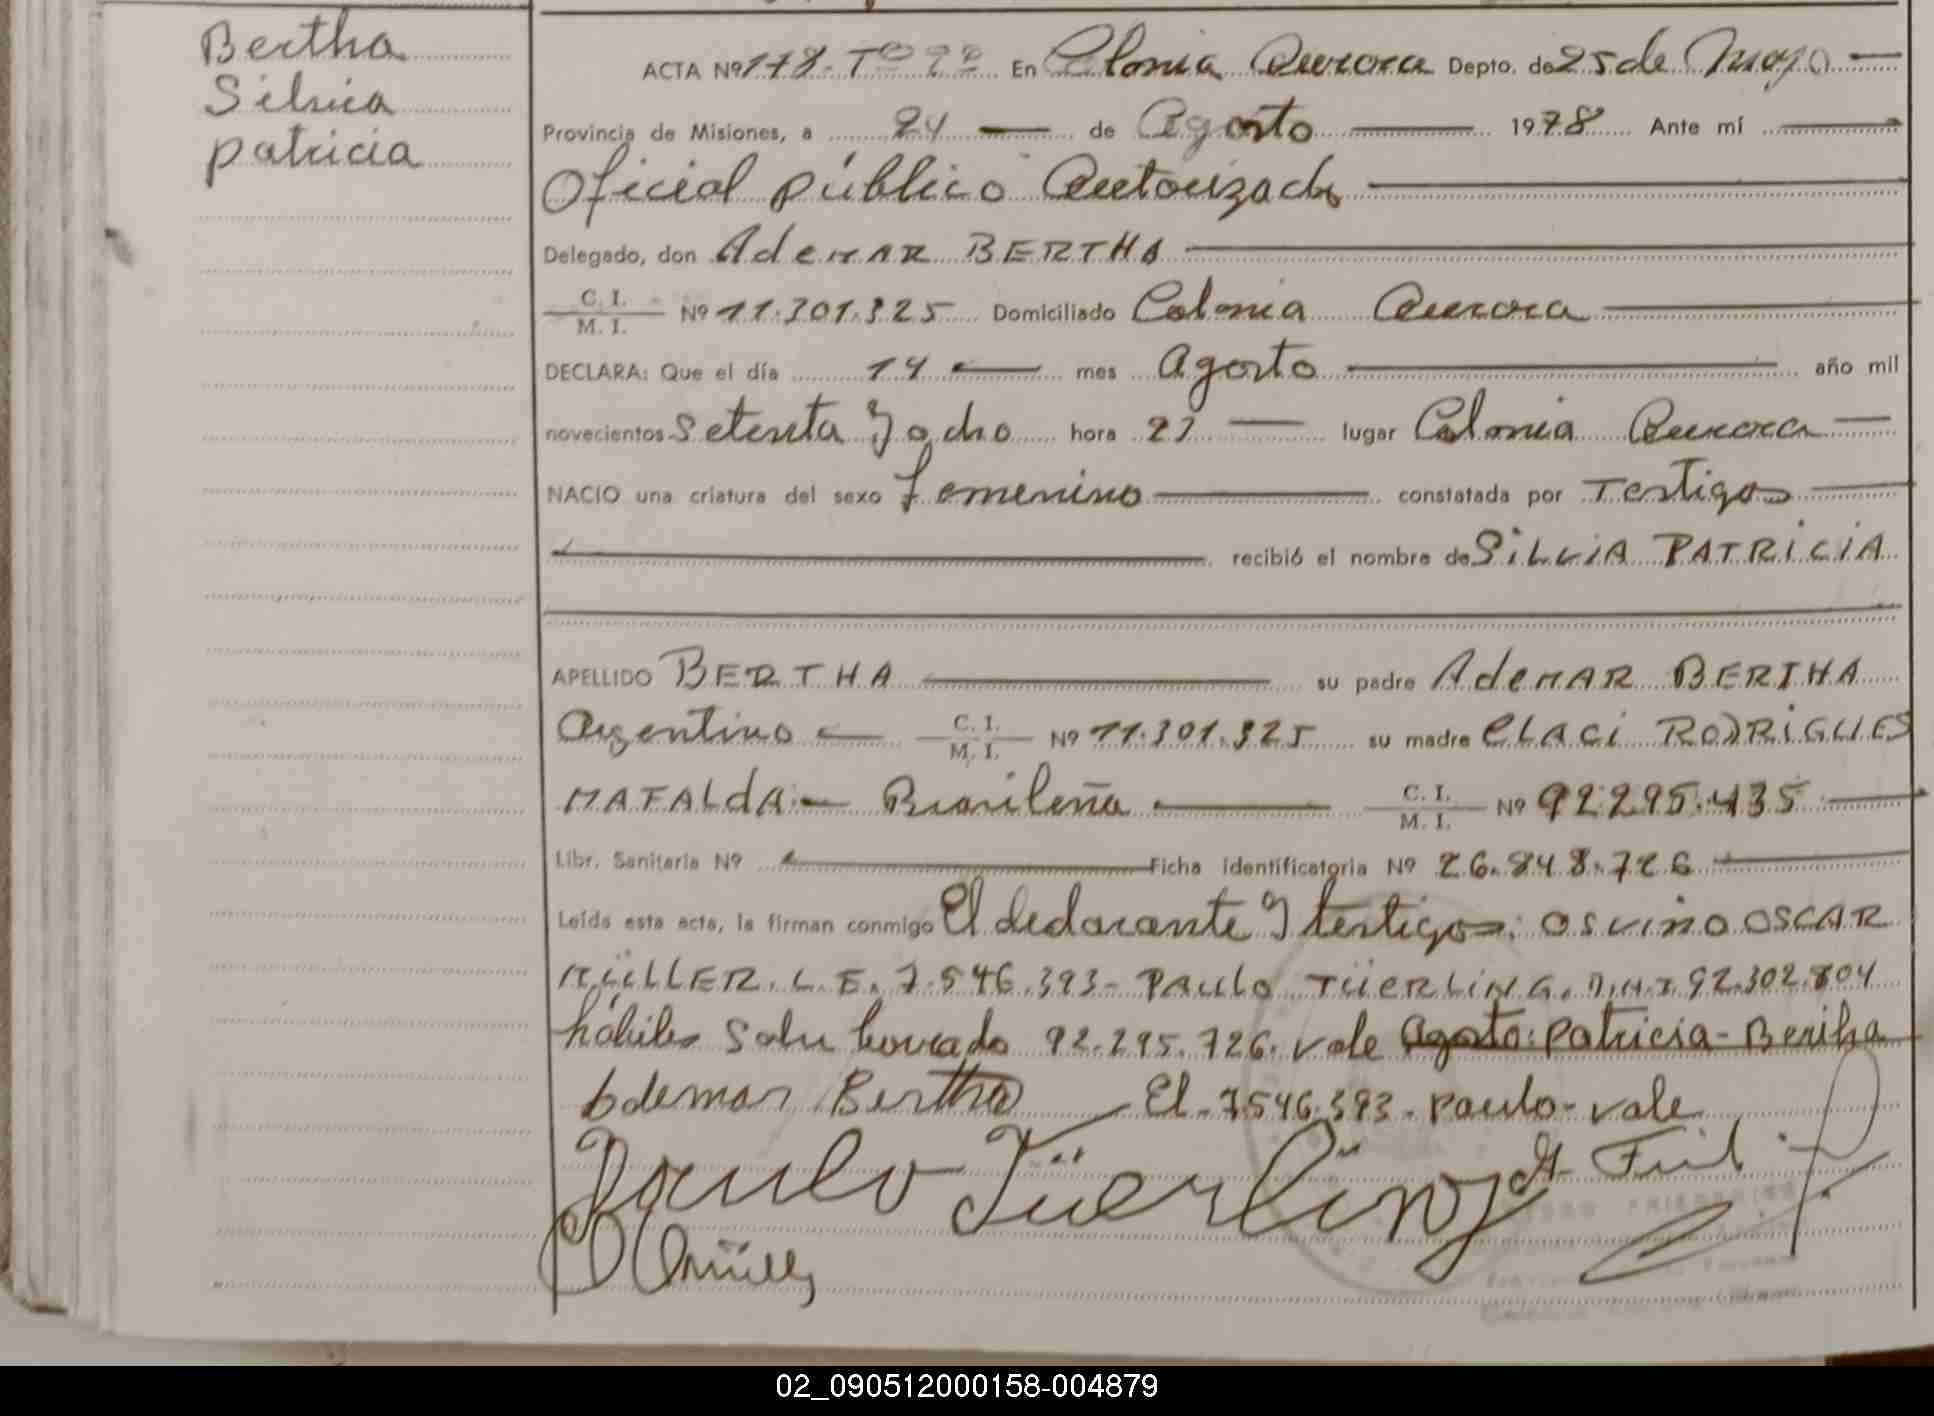 Bertha
Silvia
patricia
ACTA Nº 178. Tº 2º En Colonia Aurora Depto. de 25 de Mayo
Provincia de Misiones, a 24 de Agosto 1978 Ante mí
Oficial público Autorizado
Delegado, don AdeMAR BERTHA
C. I. / M. I. Nº 11.301.325 Domiciliado Colonia Aurora
DECLARA: Que el día 14 mes agosto año mil
novecientos setenta y ocho hora 21 lugar Colonia Aurora
NACIO una criatura del sexo femenino constatada por Testigos
recibió el nombre de SiLViA PATRiCiA
APELLIDO BERTHA su padre AdeMAR BERTHA
Argentino C. I. / M. I. Nº 11.301.325 su madre eLACi RODRiGUES
MAFALdA.- Brasileña C. I. / M. I. Nº 92.295.435
Libr. Sanitaria Nº Ficha identificatoria Nº 26.848.726
Leída esta acta, la firman conmigo El declarante y testigos: OSViNO OSCAR
MÜLLER. L. E. 7.546.393- PAULO TÜERLiNG. D.N.I 92.302.804
hábiles Sobre borrado 92.295.726. vale agosto: patricia-Bertha
Ademar Bertha El. 7546.393. paulo- vale
Paulo Tüerling
O Müller